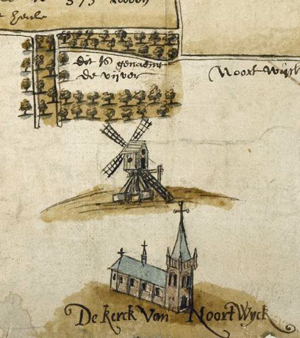 dit is genaemt
de vijver
Noort Wijck
De kerck Van Noort Wyck